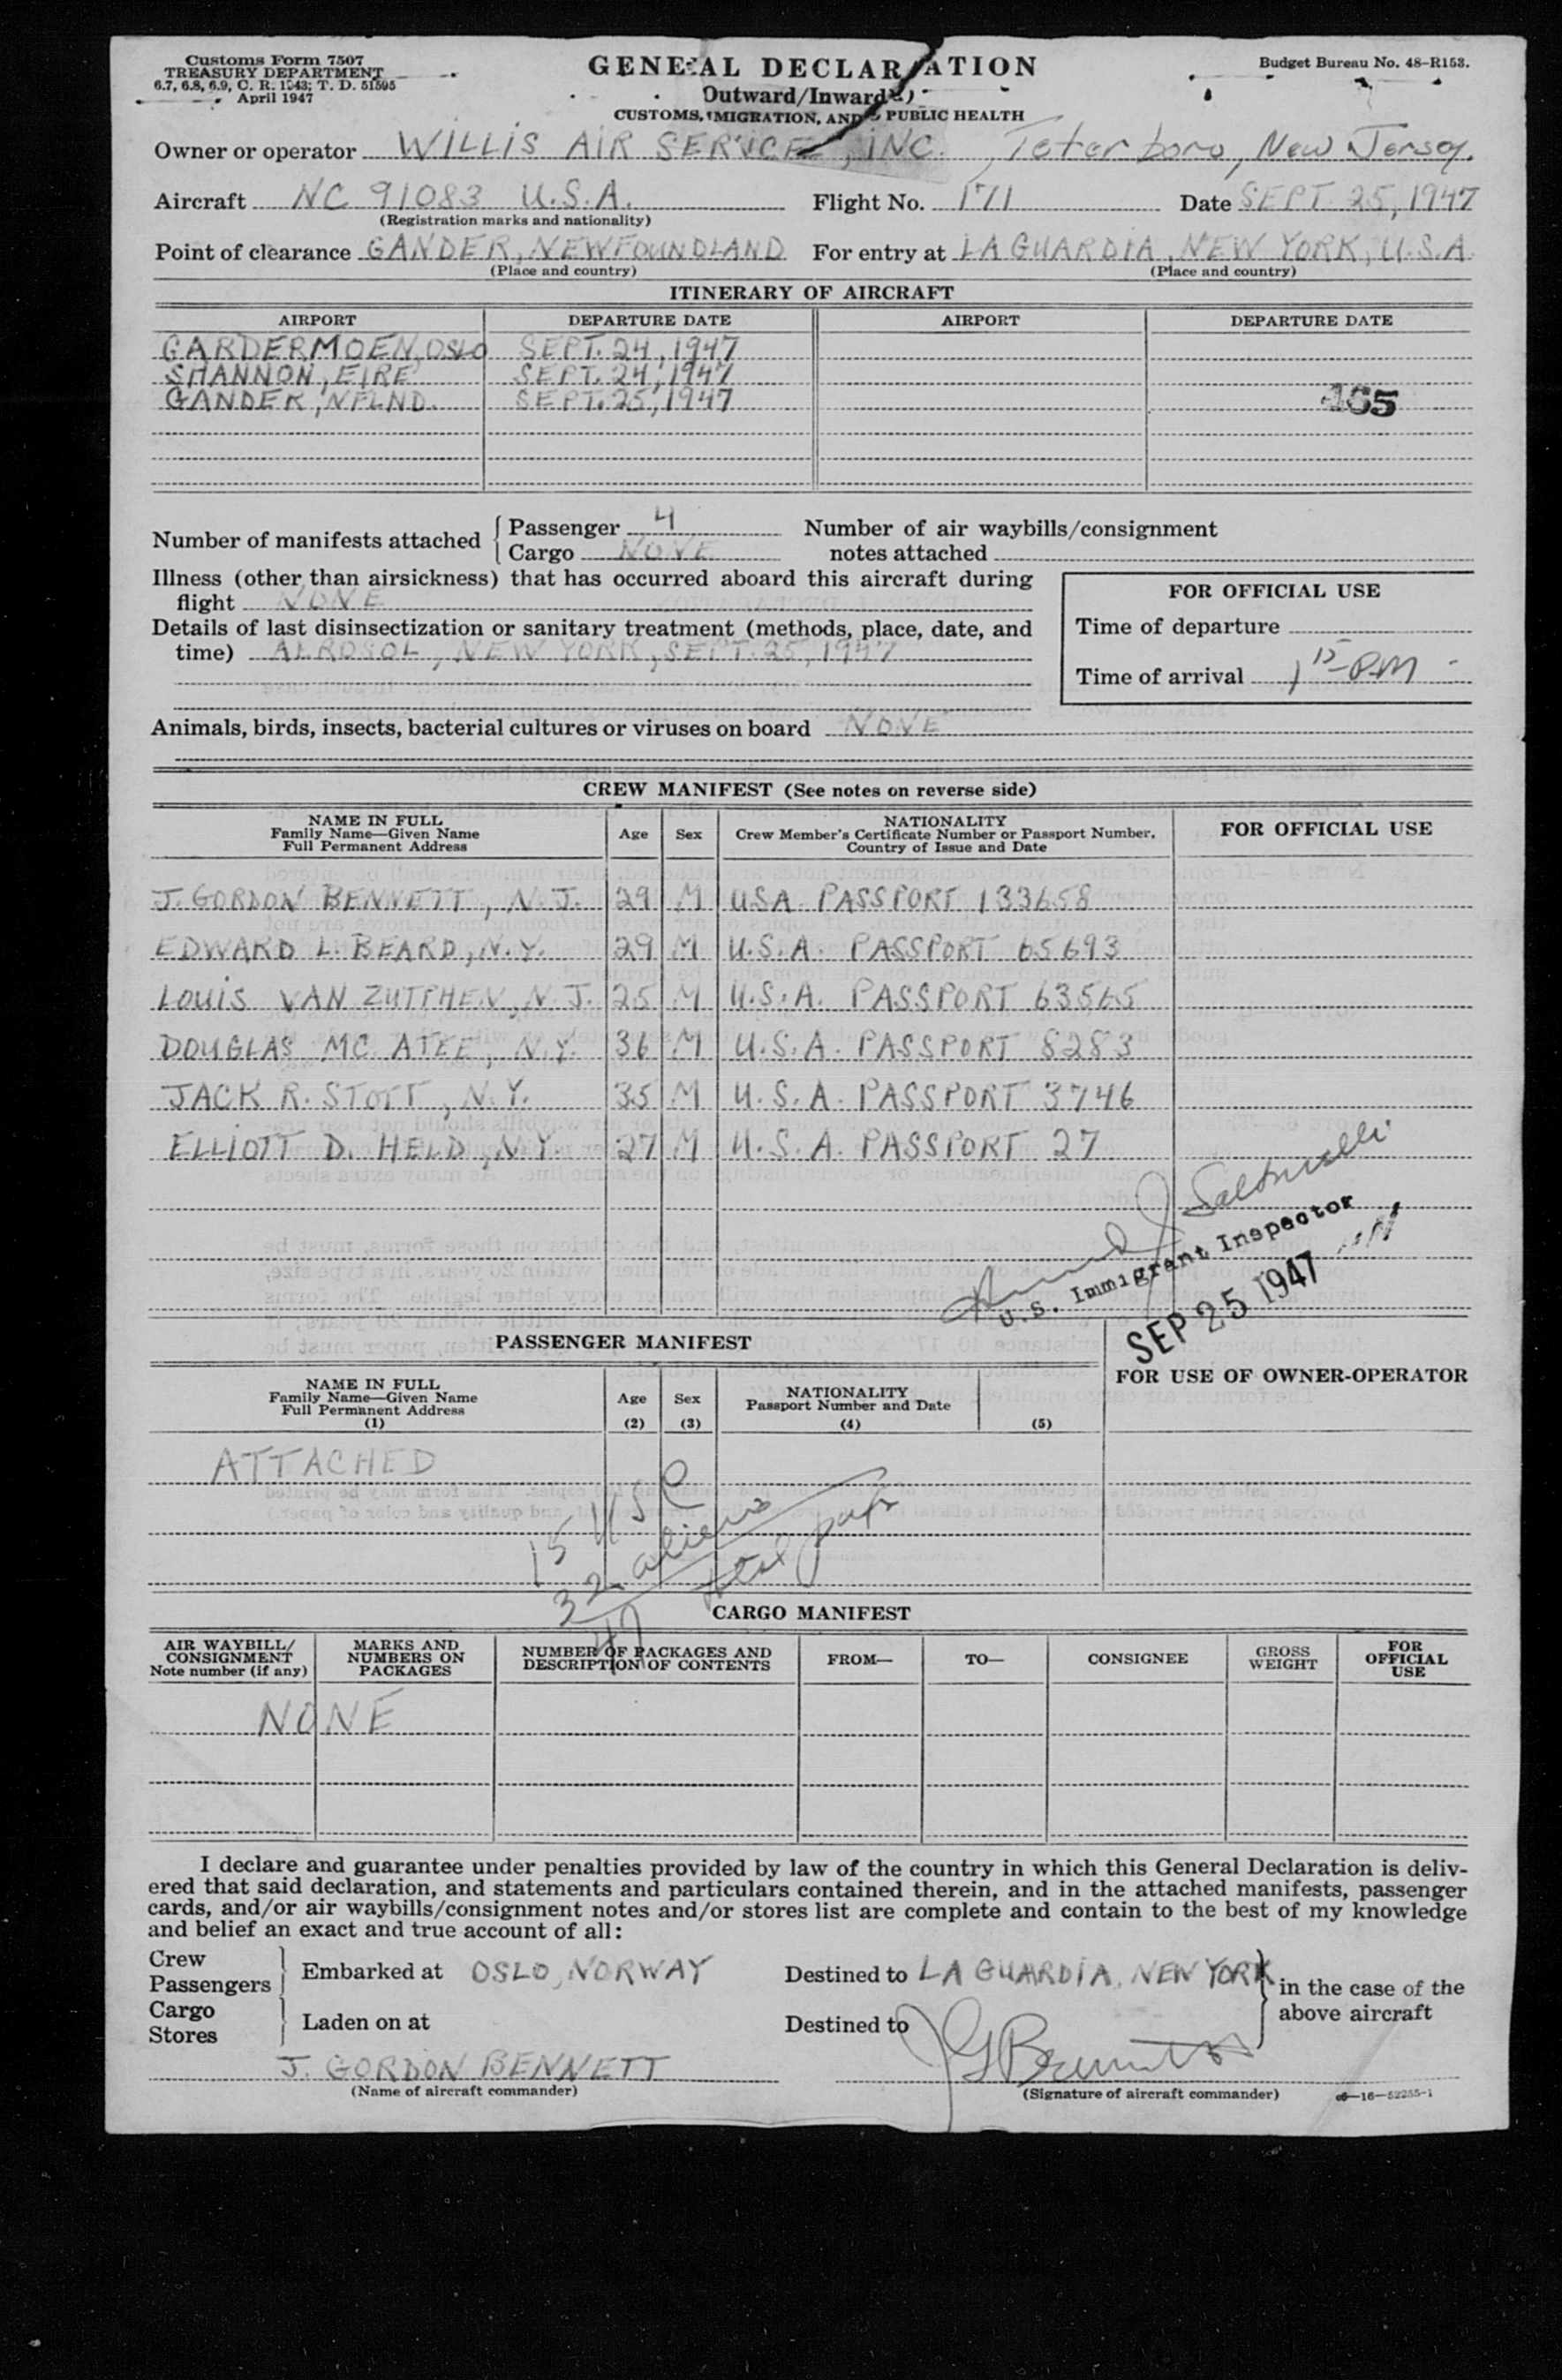 Customs Form 7507
TREASURY DEPARTMENT
6.7, 6.8, 6.9, C. R. 1943; T. D. 51595
April 1947
GENERAL DECLARATION
Outward/Inward
CUSTOMS, IMMIGRATION, AND PUBLIC HEALTH
Budget Bureau No. 48-R153.
Owner or operator WILLIS AIR SERVICE, INC., Teterboro, New Jersey.
Aircraft NC 91083 U.S.A. Flight No. 1711 Date SEPT. 25, 1947
(Registration marks and nationality)
Point of clearance GANDER, NEWFOUNDLAND For entry at LA GUARDIA, NEW YORK, U.S.A.
(Place and country) (Place and country)
ITINERARY OF AIRCRAFT
AIRPORT DEPARTURE DATE AIRPORT DEPARTURE DATE
GARDERMOEN, OSLO SEPT. 24, 1947
SHANNON, EIRE SEPT. 24, 1947
GANDER, NFLND. SEPT. 25, 1947 165
Number of manifests attached { Passenger 4 Number of air waybills/consignment
Cargo NONE notes attached
Illness (other than airsickness) that has occurred aboard this aircraft during
flight NONE
FOR OFFICIAL USE
Details of last disinsectization or sanitary treatment (methods, place, date, and Time of departure
time) AEROSOL, NEW YORK, SEPT. 25, 1947
Time of arrival 1 15 PM
Animals, birds, insects, bacterial cultures or viruses on board NONE
CREW MANIFEST (See notes on reverse side)
NAME IN FULL
Family Name—Given Name
Full Permanent Address
Age Sex
NATIONALITY
Crew Member's Certificate Number or Passport Number,
Country of Issue and Date
FOR OFFICIAL USE
J. GORDON BENNETT, N.J. 29 M USA PASSPORT 133658
EDWARD L. BEARD, N.Y. 29 M U.S.A. PASSPORT 65693
LOUIS VAN ZUTPHEN, N.J. 25 M U.S.A. PASSPORT 63565
DOUGLAS MC ATEE, N.Y. 36 M U.S.A. PASSPORT 8283
JACK R. STOTT, N.Y. 35 M U.S.A. PASSPORT 3746
ELLIOTT D. HELD, N.Y. 27 M U.S.A. PASSPORT 27
U.S. Immigrant Inspector
SEP 25 1947
PASSENGER MANIFEST
NAME IN FULL
Family Name—Given Name
Full Permanent Address
(1)
Age
(2)
Sex
(3)
NATIONALITY
Passport Number and Date
(4)
(5)
FOR USE OF OWNER-OPERATOR
ATTACHED
15 USC
32 aliens
47 total pax
CARGO MANIFEST
AIR WAYBILL/
CONSIGNMENT
Note number (if any)
MARKS AND
NUMBERS ON
PACKAGES
NUMBER OF PACKAGES AND
DESCRIPTION OF CONTENTS
FROM—
TO—
CONSIGNEE
GROSS
WEIGHT
FOR
OFFICIAL
USE
NONE
I declare and guarantee under penalties provided by law of the country in which this General Declaration is deliv-
ered that said declaration, and statements and particulars contained therein, and in the attached manifests, passenger
cards, and/or air waybills/consignment notes and/or stores list are complete and contain to the best of my knowledge
and belief an exact and true account of all:
Crew
Passengers } Embarked at OSLO, NORWAY Destined to LA GUARDIA, NEW YORK } in the case of the
above aircraft
Cargo
Stores } Laden on at Destined to
J. GORDON BENNETT JGBennett
(Name of aircraft commander) (Signature of aircraft commander) 16—52255-1